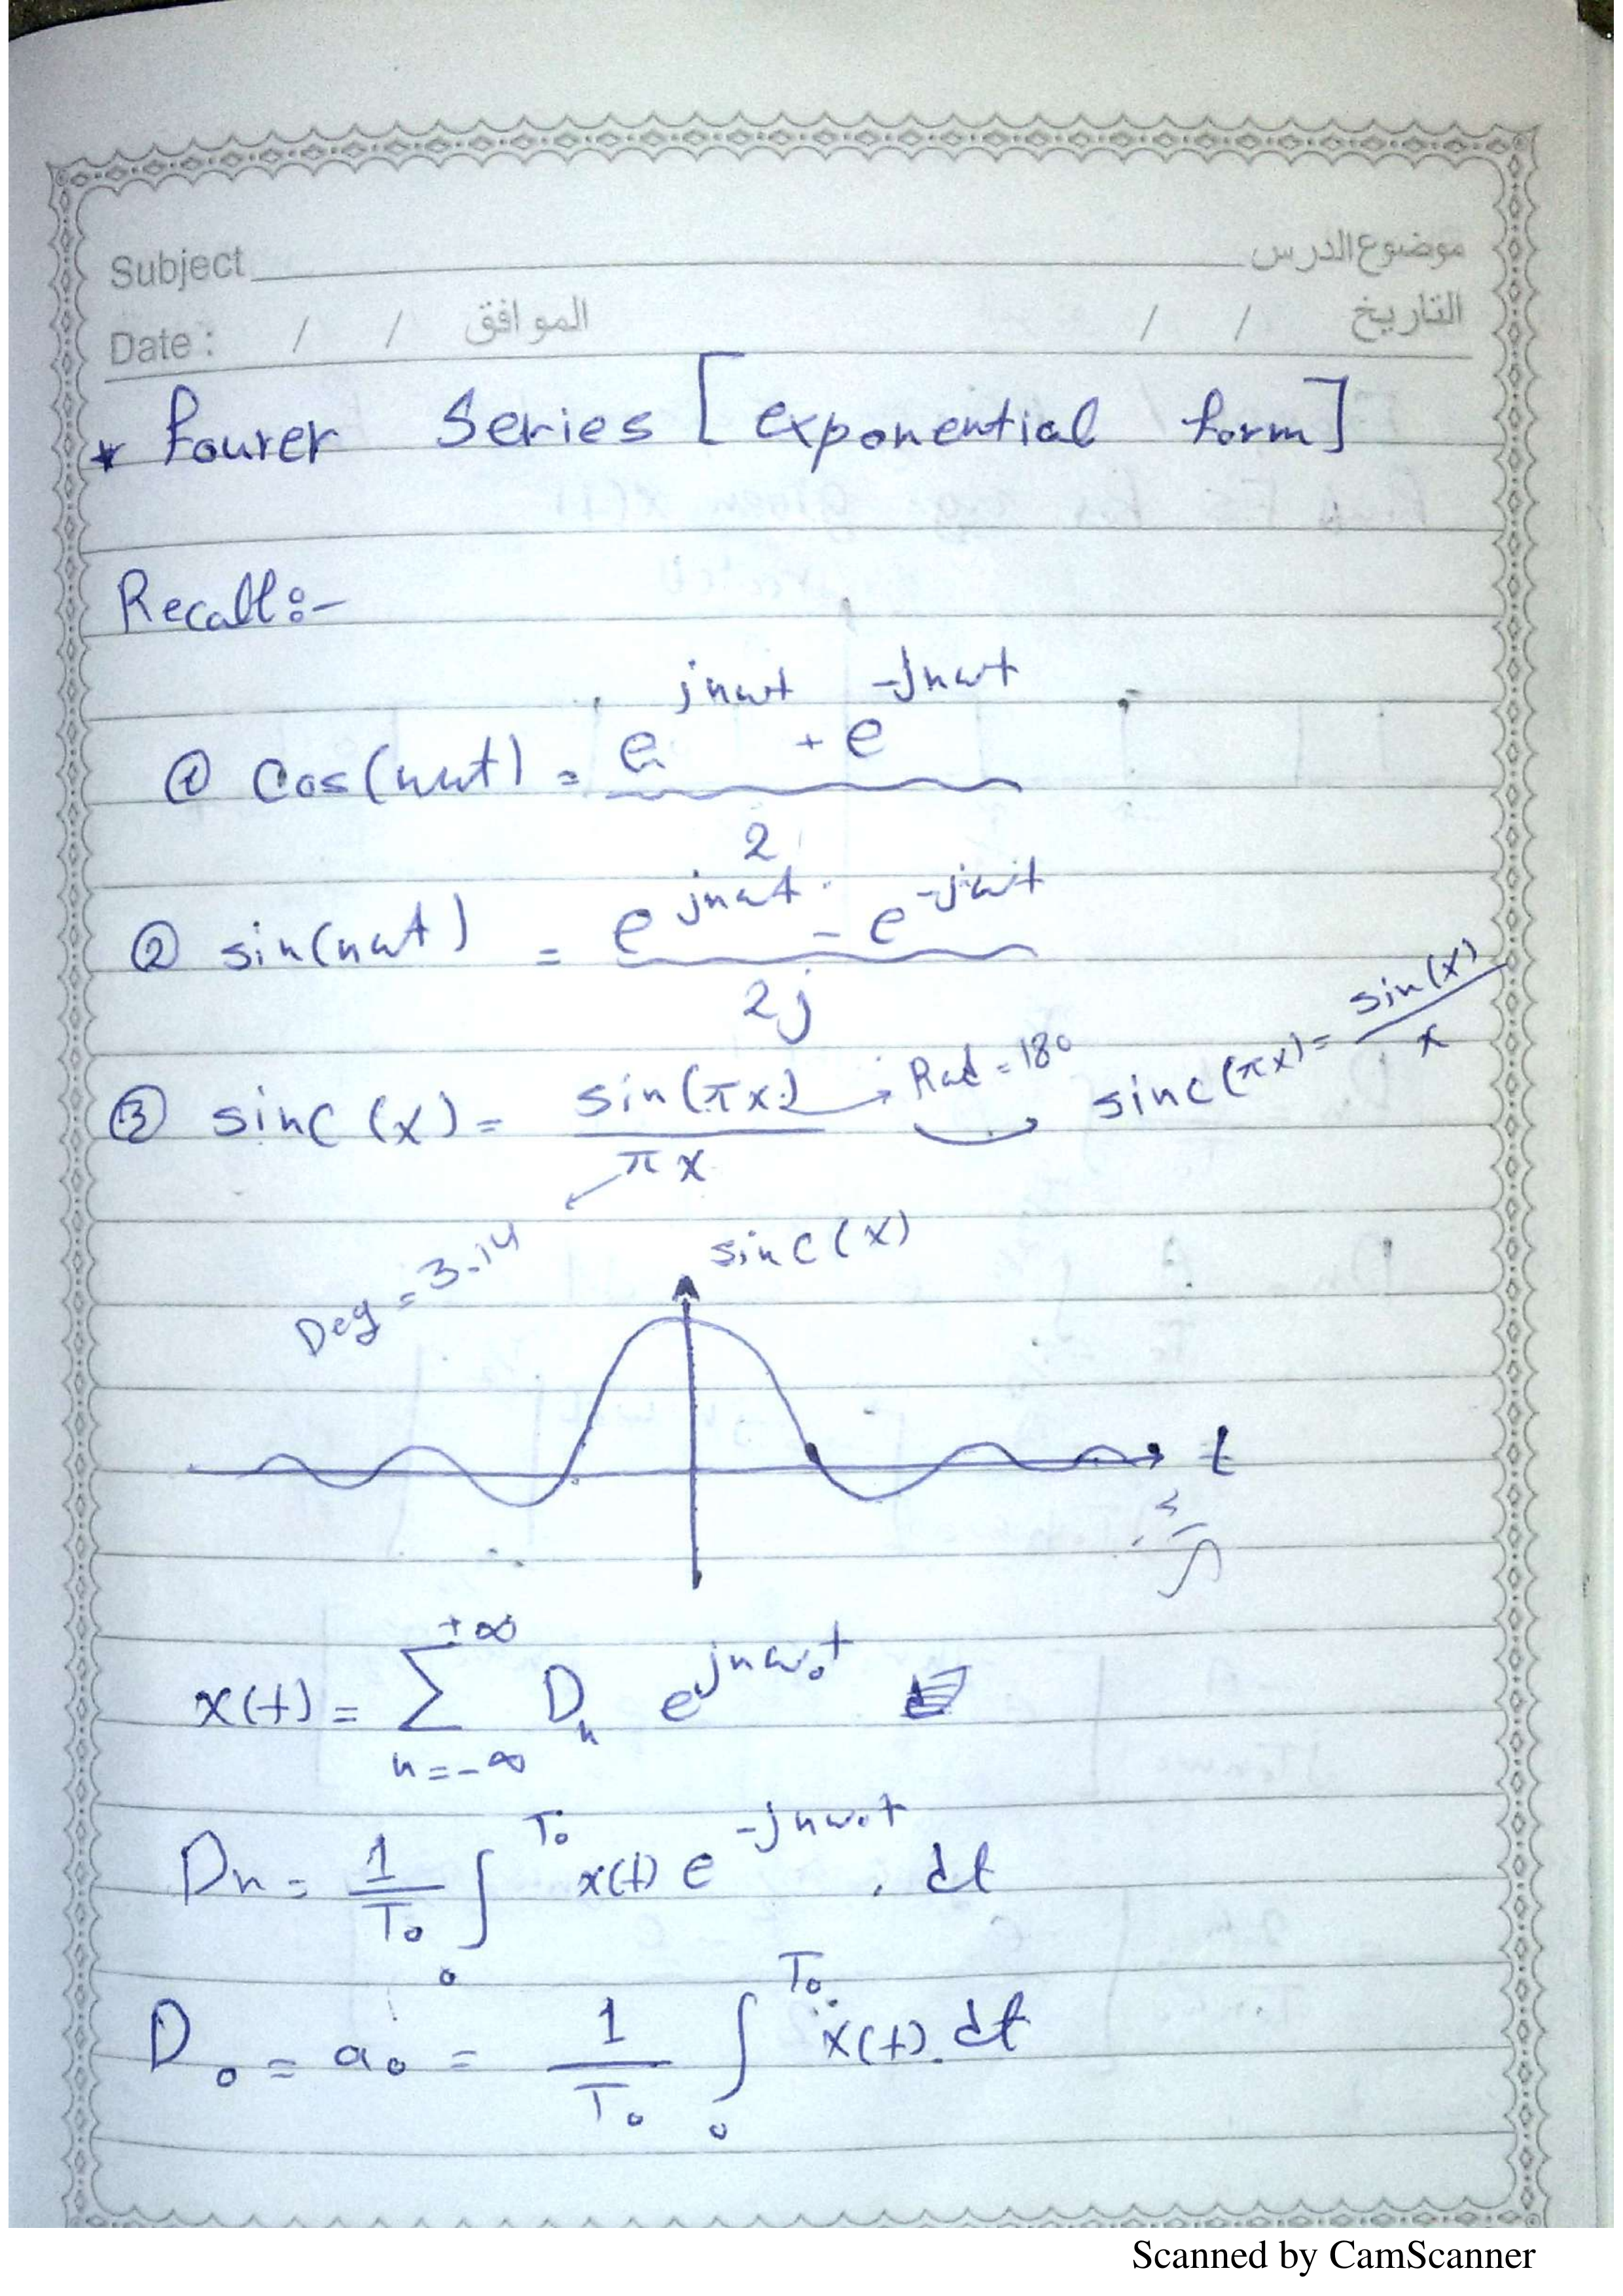 Subject موضوع الدرس
Date : / / الموافق / / التاريخ
* Fourer Series [exponential form]
Recall:-
① cos(nωt) = (e^{jnωt} + e^{-jnωt}) / 2
② sin(nωt) = (e^{jnωt} - e^{-jωt}) / 2j
③ sinc(x) = sin(πx) / πx → Rad = 180 sinc(πx) = sin(x) / x
Deg = 3.14
sinc(x)
t
x(t) = ∑_{n=-∞}^{+∞} D_n e^{jnω₀t}
Dn = 1/T₀ ∫_0^{T₀} x(t) e^{-jnω₀t} . dt
D₀ = a₀ = 1/T₀ ∫_0^{T₀} x(t) . dt
Scanned by CamScanner